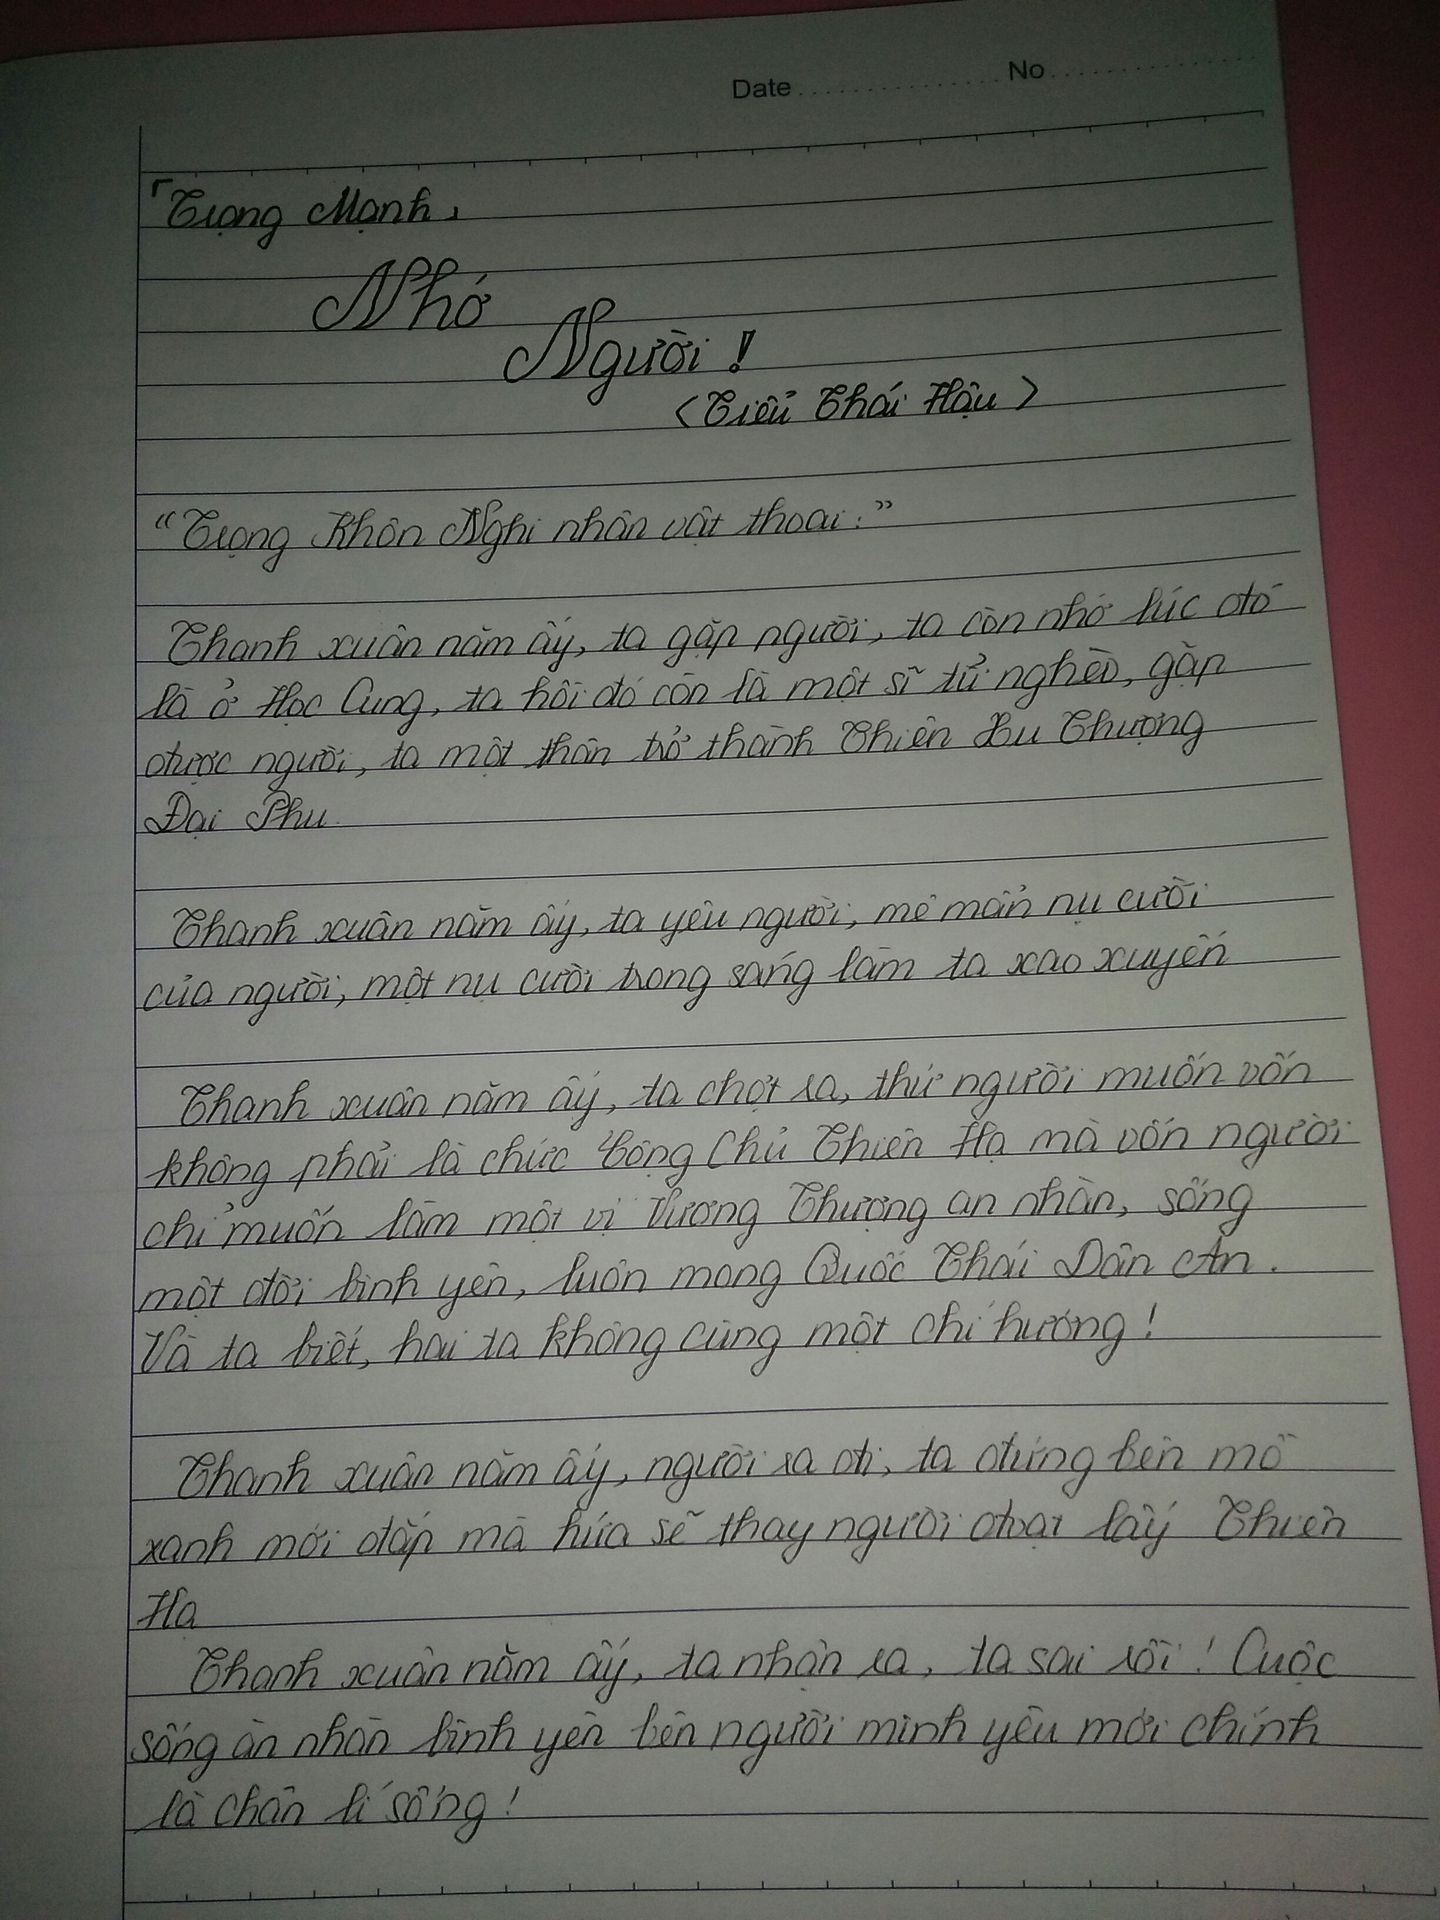 Date No
「Trọng Mạnh」
Nhớ
Người!
<Tiểu Thái Hậu>
"Trọng Khôn Nghi nhân vật thoại:"
Thanh xuân năm ấy, ta gặp người, ta còn nhớ lúc đó
là ở Học Cung, ta hồi đó còn là một sĩ tử nghèo, gặp
được người, ta một thân trở thành Thiên Xu Thượng
Đại Phu
Thanh xuân năm ấy, ta yêu người, mê mẩn nụ cười
của người, một nụ cười trong sáng làm ta xao xuyến
Thanh xuân năm ấy, ta chợt ra, thứ người muốn vốn
không phải là chức Cộng Chủ Thiên Hạ mà vốn người
chỉ muốn làm một vị Vương Thượng an nhàn, sống
một đời bình yên, luôn mong Quốc Thái Dân An.
Và ta biết, hai ta không cùng một chí hướng!
Thanh xuân năm ấy, người ra đi, ta đứng bên mồ
xanh mới đắp mà hứa sẽ thay người đoạt lấy Thiên
Hạ
Thanh xuân năm ấy, ta nhận ra, ta sai rồi! Cuộc
sống an nhàn bình yên bên người mình yêu mới chính
là chân lí sống!